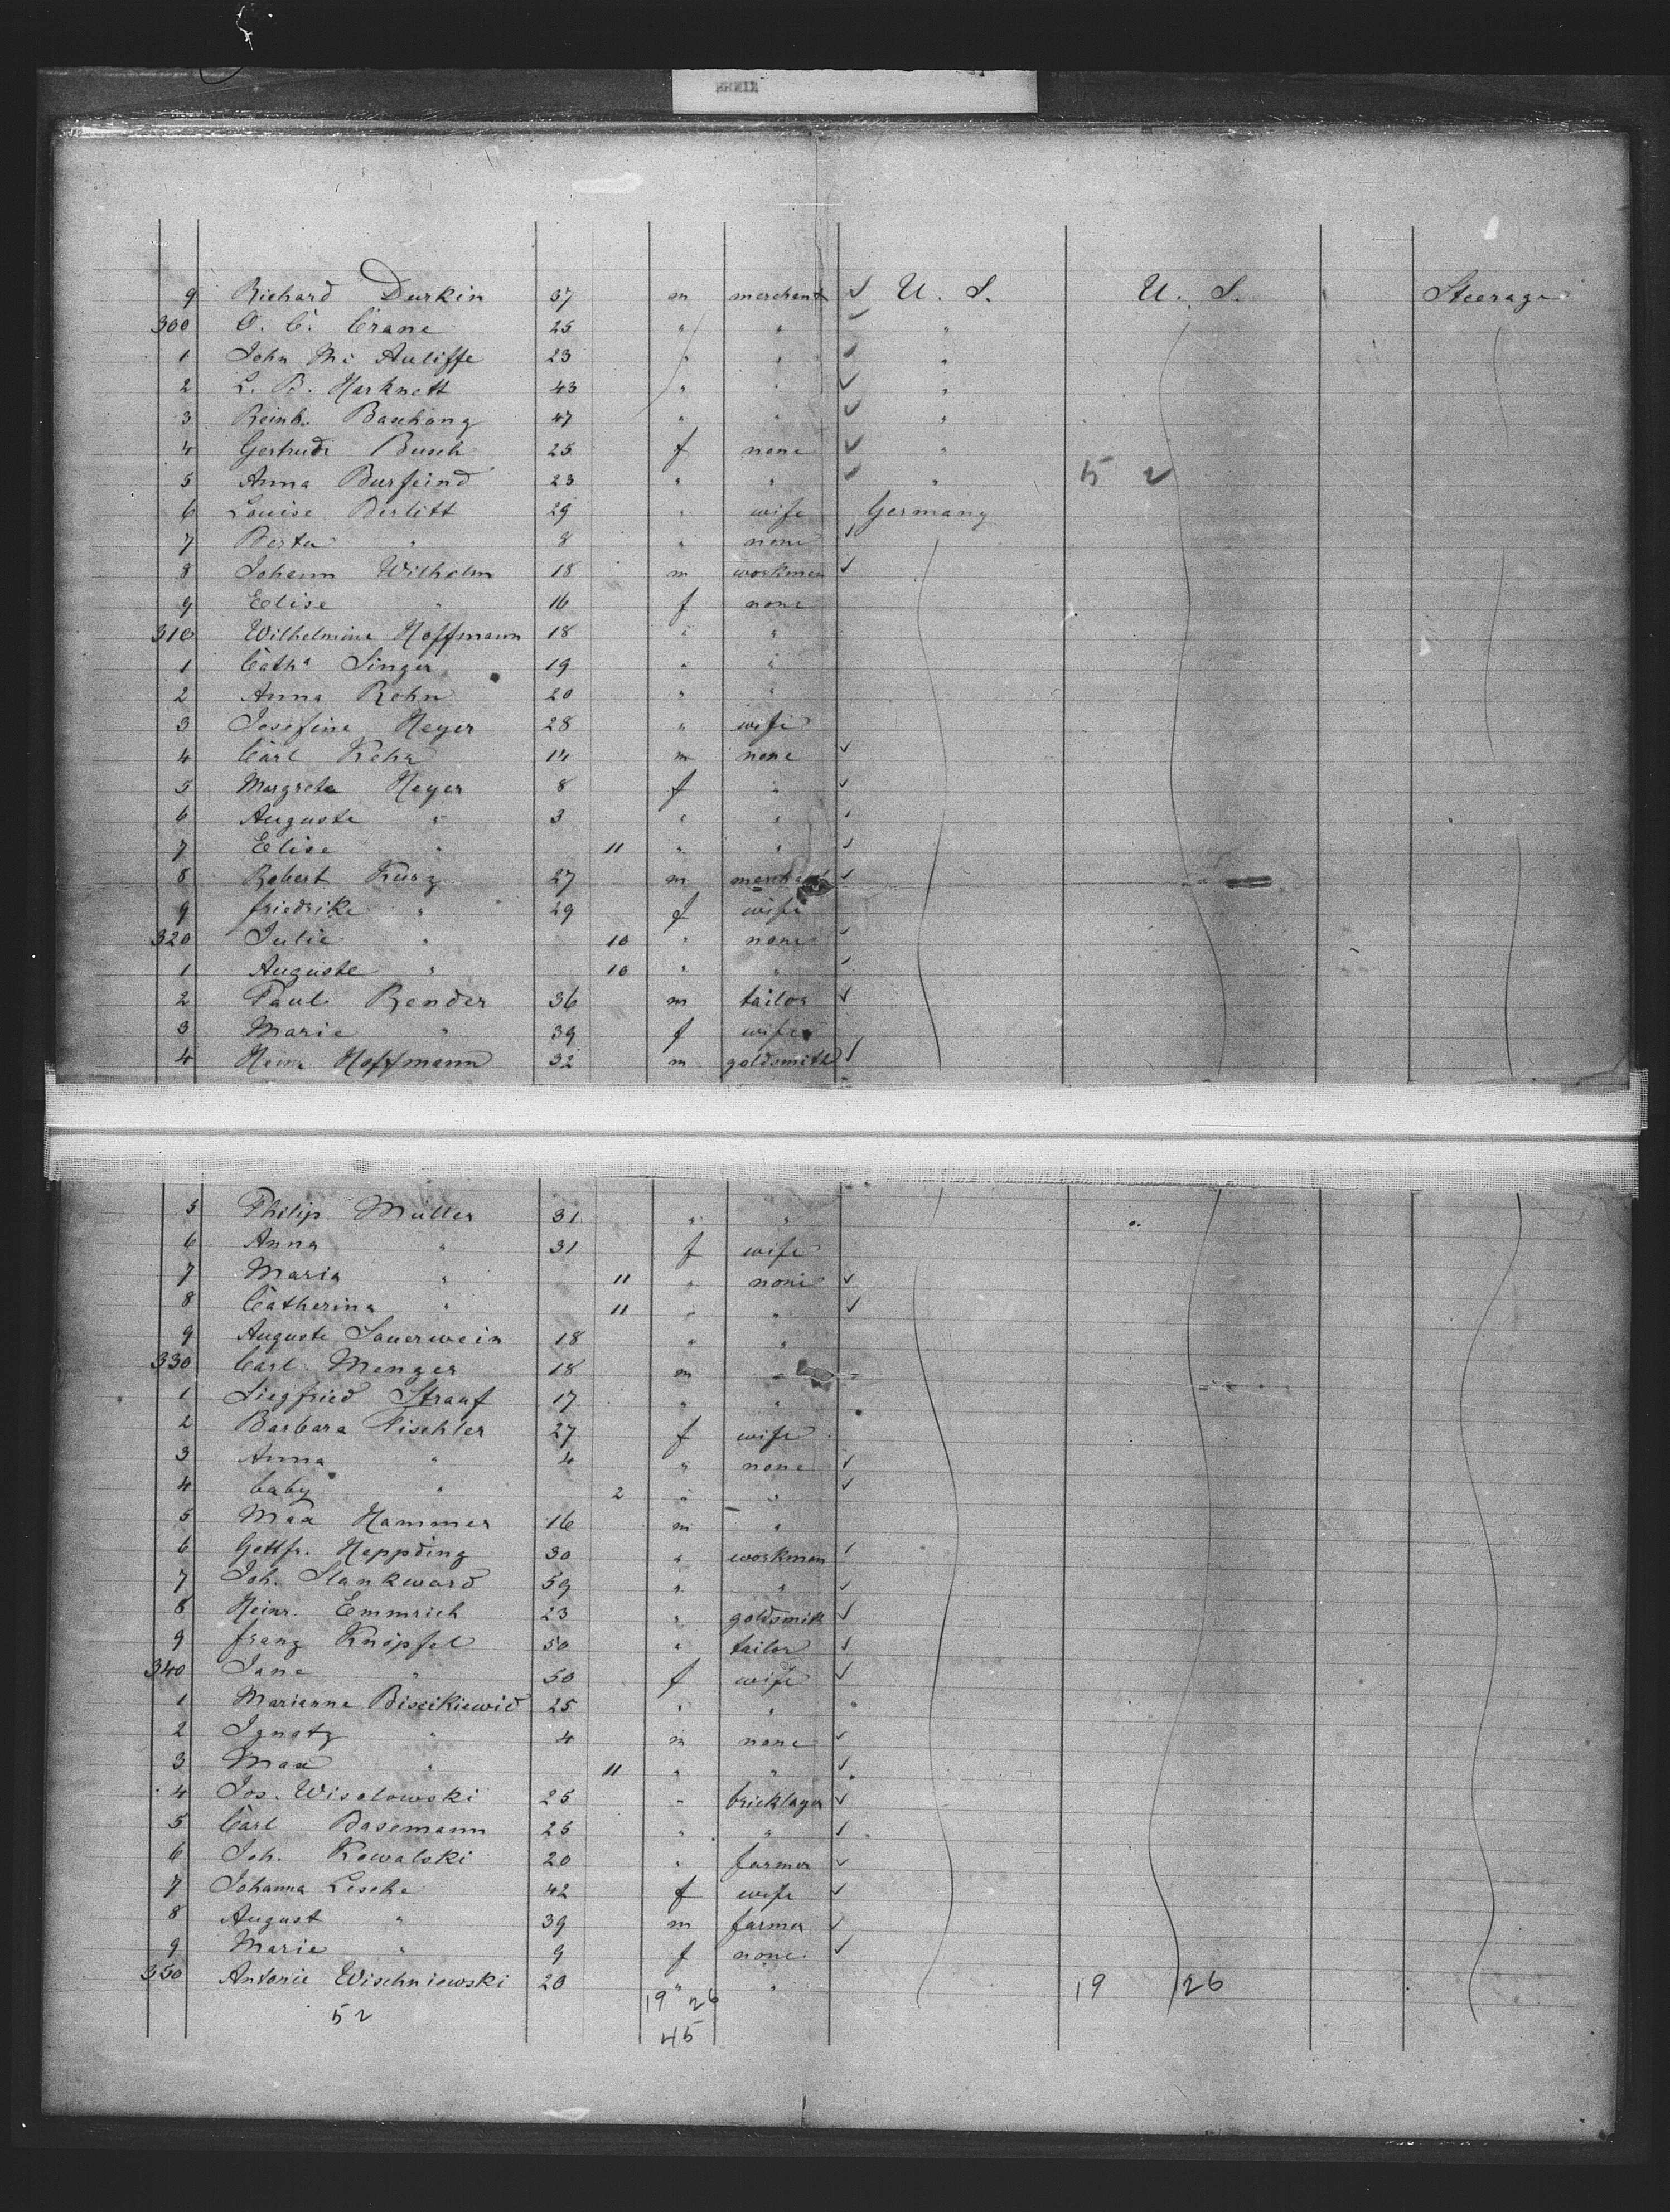 RHEIN
9 Richard Durkin 37 m merchant ✓ U. S. U. S. Steerage
300 O. C. Crane 25 " " ✓ "
1 John Mc Auliffe 23 " " ✓ "
2 L. B. Harknett 43 " " ✓ "
3 Reinh. Baschong 47 " " ✓ "
4 Gertrude Busch 25 f none ✓ "
5 Anna Burfeind 23 " " ✓ " 5 2
6 Louise Berlitt 29 " wife Germany
7 Berta " 8 " none ✓
8 Johann Wilhelm 18 m workman ✓
9 Elise " 16 f none
310 Wilhelmine Hoffmann 18 " "
1 Cath^a Singer 19 " "
2 Anna Rohn 20 " "
3 Josefine Heyer 28 " wife
4 Carl Kehr 14 m none ✓
5 Margreta Heyer 8 f " ✓
6 Auguste " 3 " " ✓
7 Elise " 11 " " ✓
8 Robert Kurz 27 m merchant ✓
9 friedrike " 29 f wife
320 Julie " 10 " none ✓
1 Auguste " 10 " " ✓
2 Paul Bender 36 m tailor ✓
3 Marie " 39 f wife
4 Heinr. Hoffmann 32 m goldsmith ✓
5 Philip Müller 31 " "
6 Anna " 31 f wife
7 Maria " 11 " none ✓
8 Catherina " 11 " " ✓
9 Auguste Sauerwein 18 " "
330 Carl Menger 18 m "
1 Siegfried Strauf 17 " "
2 Barbara Fischler 27 f wife
3 Anna " 4 " none ✓
4 baby " 2 " " ✓
5 Max Hammer 16 m "
6 Gottfr. Heppding 30 " workman ✓
7 Joh. Slankward 59 " " ✓
8 Heinr. Emmrich 23 " goldsmith ✓
9 franz Knöpfel 50 " tailor ✓
340 Jane " 50 f wife ✓
1 Marianne Biscikiewid 25 " "
2 Ignatz " 4 m none ✓
3 Max " 11 " " ✓
4 Jos. Wisolowski 25 " bricklayer ✓
5 Carl Basemann 25 " " ✓
6 Joh. Kowalski 20 " farmer ✓
7 Johanna Lesche 42 f wife ✓
8 August " 39 m farmer ✓
9 Marie " 9 f none ✓
350 Antonie Wischniewski 20 " " 19 26
52 19 26
45